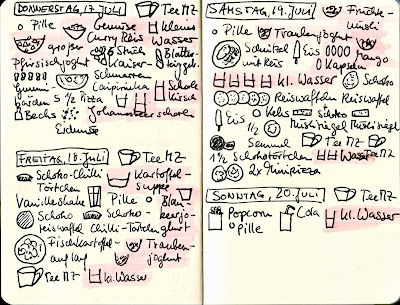 DONNERSTAG, 17. JULI
Tee MZ
Pille
Gemüse
Curry Reis
Kleins
Wasser
großer
Pfirsichjoghurt
6 Stück
Kaiser-
Schmarren
Gummi-
5 1/2 Pizza
Caipirinha
Schoko
Kirsch
Bechs
Johannisbeerschorle
FREITAG, 18. JULI
Tee MZ
Schoko-Chilli-
Törtchen
Kartoffel-
suppe
Vanilleshake
Pille
Blau-
beerjo-
ghurt
Schoko
reiswaffel
Schoko-
Chilli-Törtchen
Fischkartoffel-
auflauf
Trauben-
joghurt
Tee MZ
kl. Wasser
SAMSTAG, 19. JULI
Früchte-
müsli
Pille
Traubenjoghurt
Schnitzel
mit Reis
Eis
Mango
Kapseln
kl. Wasser
Schoko
Reiswaffeln Reiswaffel
Eis
Keks
Schoko
1/2
Müsliriegel Müsliriegel
Semmel
Tee MZ
Tee MZ
1 1/2 Schokotörtchen
Wasser
2x Minipizza
SONNTAG, 20. JULI
Tee MZ
Popcorn
Cola
kl. Wasser
Pille